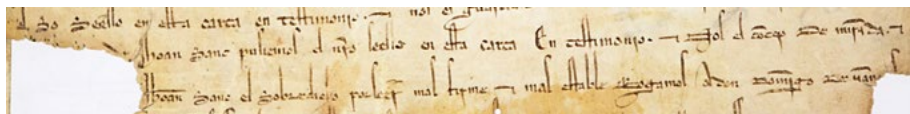 so seello en esta carta en testimonio. ⁊ nos el
Johan sanc pusiemos el nr̃o seello en esta carta En testimonio. ⁊ Nos el cōceio de mirāda. ⁊
Johan sanc el sobredicho por seer mas firme ⁊ mas estable Rogamos a don Domīgo